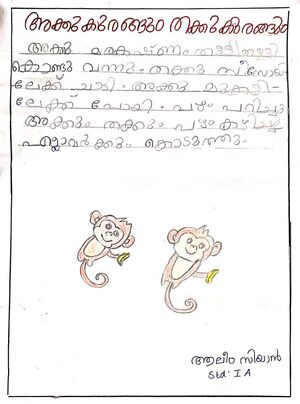 അക്കുകുരങ്ങും തക്കുകുരങ്ങും
അക്കു മരകഷ്ണം തള്ളി തള്ളി
കൊണ്ടു വന്നു. തക്കു സീസോ
ലേക്ക് ചാടി. അക്കു മുകളി-
ലേക്ക് പോയി. പഴം പറിച്ചു
അക്കും തക്കും പഴം കഴിച്ചു
എല്ലാവർക്കും കൊടുത്തു.
ആലീം സിയാൻ
Std: I A